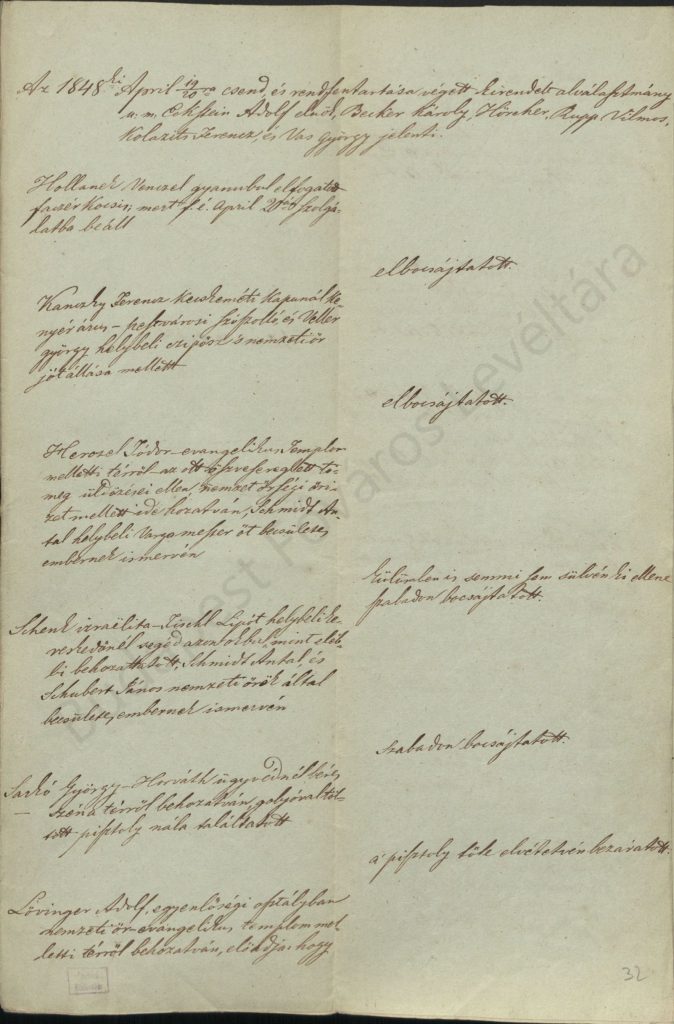 Az 1848ki April 19/20a csend, és rendfentartása végett kirendelt alválasztmány
u. m. Eckstein Adolf elnök, Becker Károly, Hörcher, Rupp Vilmos,
Kolazits Ferencz, és Vas György jelenti.
Hollanek Venczel gyanubul elfogatott
fiacsér kocsis; mert f. é. April 20án szolgá-
latba beállt
elbocsájtatott.
Kanczky Ferencz kecskeméti kapunál ke-
nyér árus – pestvárosi szószolló, és Veller
györgy helybeli czipész 's nemzetiőr
jótállása mellett
elbocsájtatott.
Herosel Tódor – evangelikus Templom
melletti térről – az ott öszvesereglett tö-
meg üldözései ellen, nemzetőrségi őri-
zet mellett ide hozatván, Schmidt An-
tal helybeli Varga mester őt becsületes,
embernek ismervén
különben is semmi sem sülvén ki ellene
szabadon bocsájtatott.
Schenk izraëlita – Fischl Lipót helybeli ke-
reskedőnél segéd azon okbul, mint eléb-
bi behozattatott, Schmidt Antal, és
Schubert János nemzeti őrök által
becsületes, embernek ismervén
szabadon bocsájtatott.
Sackó György – Horváth ügyvédnél béres
– széna térről behozatván, golyóval töl-
tött pisztoly nála találtatott
a' pisztoly tőle elvétetvén bezáratott.
Lövinger Adolf, egyenlőségi osztályban
nemzeti őr – evangelikus templom mel-
letti térről behozatván, előadja: hogy
32
Budapest Főváros Levéltára